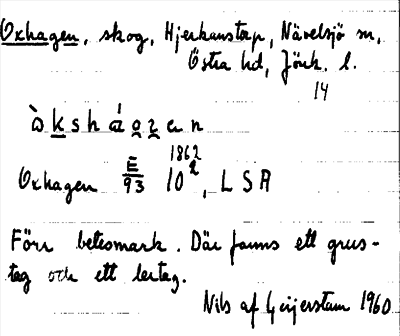 Oxhagen, skog, Hjerkanstorp, Nävelsjö sn,
Östra hd, Jönk. l.
14
1862
Oxhagen E/93 10², LSA
Förr betesmark. Där fanns ett grus-
tag och ett lertag.
Nils af Geijerstam 1960